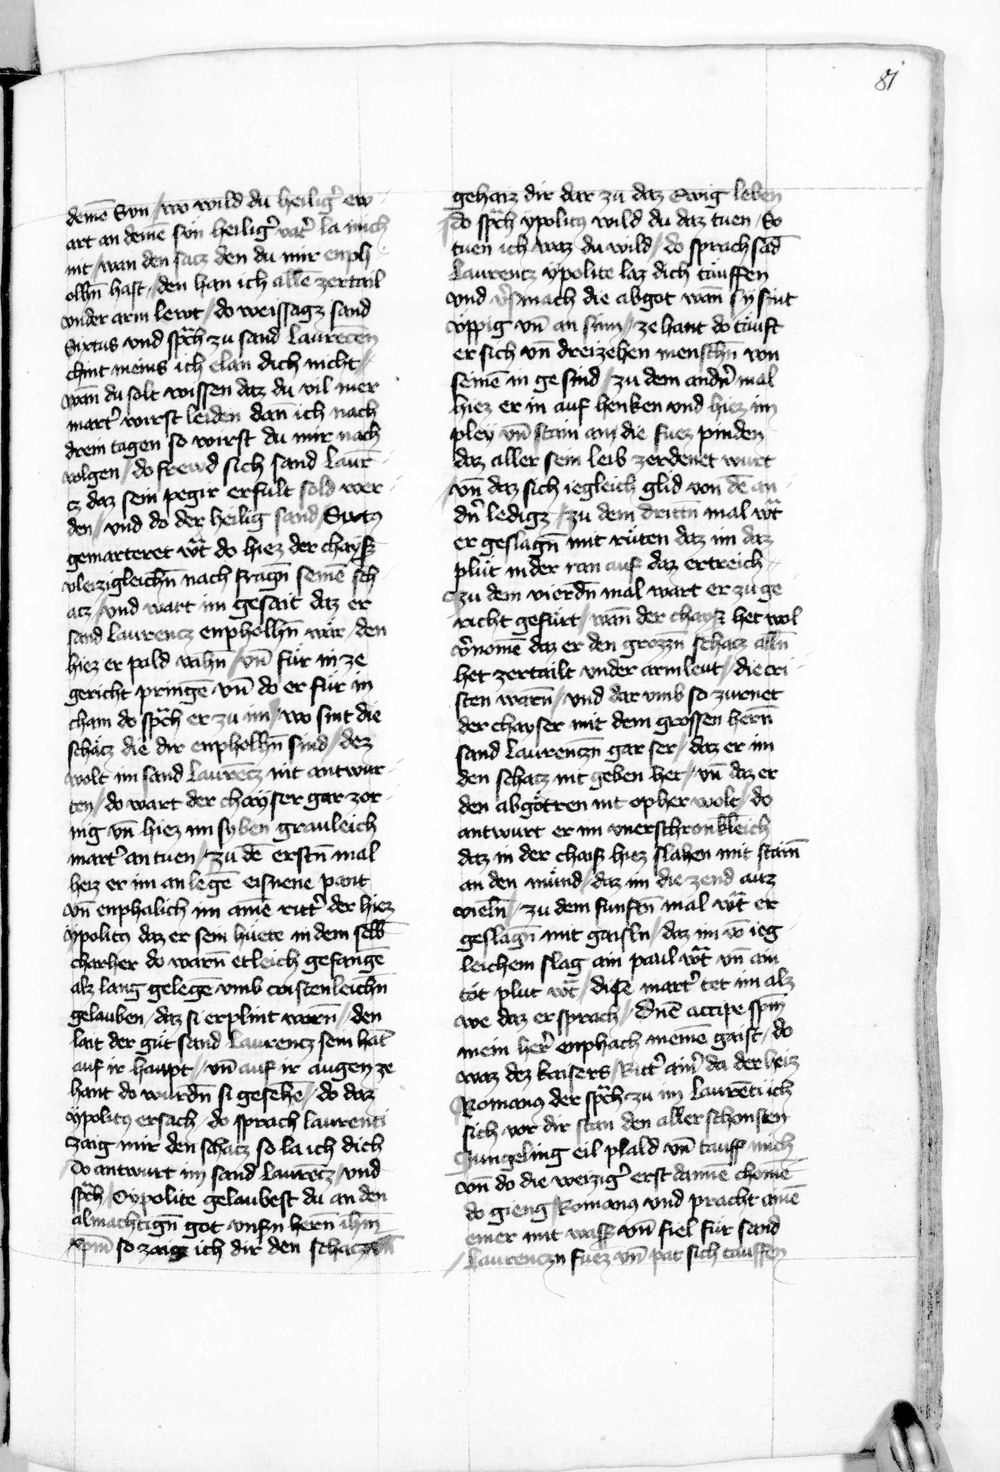 81
deinē Svn / wo wild du heilig' ew
art an deinē svn heilig' vat' la mich
nit / wan den satz den du mir enph
olhn hast / den han ich allē zertail
vnder arm lewt / do weissagt sand
Sixtus vnd sp̄ch zu sand Laurecen
chint meins ich elan dich nicht /
wan du solt wissen daz du vil mer
mart' wirst leiden dan ich nach
drein tagen so wirst du mir nach
volgen / do frewd sich sand Laur̄
cz daz sein pegir erfult sold wer
den / vnd do der heilig sand Sixtus
gemarteret wt̄ do hiez der chays'
vleizigleichn̄ nach fragn̄ seinē sch
acz / vnd wart im gesait daz er
sand Laurencz enpholhn̄ wär / den
hiez er pald vahn̄ / vn̄ für in ze
gericht pringē vn̄ do er für in
cham do sp̄ch er zu im / wo sint die
schäcz die dir enpholhn̄ sind / dez
wolt im sand Laurēcz nit antwur
ten / do wart der chayser gar zor
nig vn̄ hiez im syben grauleich
mart' an tuen / zu dē erstn̄ mal
heiz er im an legē eisnene pant
vn̄ enphalich im ainē ritt' der hiez
ypolitus daz er sein hüete in dem selb̄
charher do warn̄ etleich gefangē
alz lang gelegē vmb cristenleichn̄
gelauben / daz si erplint warn̄ / den
lait der güt sand Laurencz sein hāt
auf ir haupt / vn̄ auf ir augen ze
hant do wurdn̄ si gesehē / do daz
ypolitus ersach / do sprach laurenti
zaig mir den schacz so la ich dich
do antwurt im sand Laurēcz / vnd
sp̄ch / O ypolite gelaubest du an den
almachtign̄ got vnsn̄ hern̄ ihm
xpm̄ so zaig ich dir den schacz vn̄
gehaiz dir dar zu daz Ewig leben
do sp̄ch ypolitus wild du daz tuen / so
tuen ich waz du wild / do sprach sād
Laurencz ypolite laz dich täuffen
vnd v'smach die abgot wan̄ sy sint
üppig vn̄ an sinn / ze hant do täuft
er sich vn̄ dreizehen menschn̄ von
seinē in gesind / zu dem andn̄ mal
hiez er in auf henken vnd hiez im
pley vn̄ stain an die fuez pinden
daz aller sein leib zerdenet wurt
vn̄ daz sich iegleich glid von dē an
dn̄ ledigz / zu dem drittn̄ mal wt̄
er geslagn̄ mit rüten daz im daz
plüt nider ran auf daz ertreich
zu dem vierdn̄ mal wart er zu ge
richt gefürt / wan̄ der chays' het wol
v'nomē daz er den grozzn̄ schacz alln̄
het zertailt vnder arm leut / die cri
sten warn̄ / vnd dar vmb so zurnet
der chayser mit dem grossen hern̄
sand Laurenczn̄ gar ser / daz er im
den schacz nit geben het / vn̄ daz er
den abgötren nit opher wolt / do
antwurt er im vnerschronkleich
daz in der chais' hiez slahen mit stain̄
an den münd / daz im die zend auz
vieln̄ / zu dem funftn̄ mal wt̄ er
geslagn̄ mit gaisln̄ / daz im vō ieg
leichem slag ain paul wt̄ vn̄ ain
töt plut wt̄ / dise mart' tet im alz
we daz er sprach / Dn̄e accipe spm̄
mein her' enphach meinē gaist / do
waz dez kaisers Ritt' ain' da der heiz
Romanus der sp̄ch zu im Laurēti ich
sich vor dir stan den aller schonsten
Jungeling eil plald vn̄ tauff mich
vn̄ do die weizig' erst dannē chomē
do gieng Romanus vnd pracht ainē
emer mit wass' vn̄ fiel für sand
Laurenczn fuez vn̄ pat sich tauffen